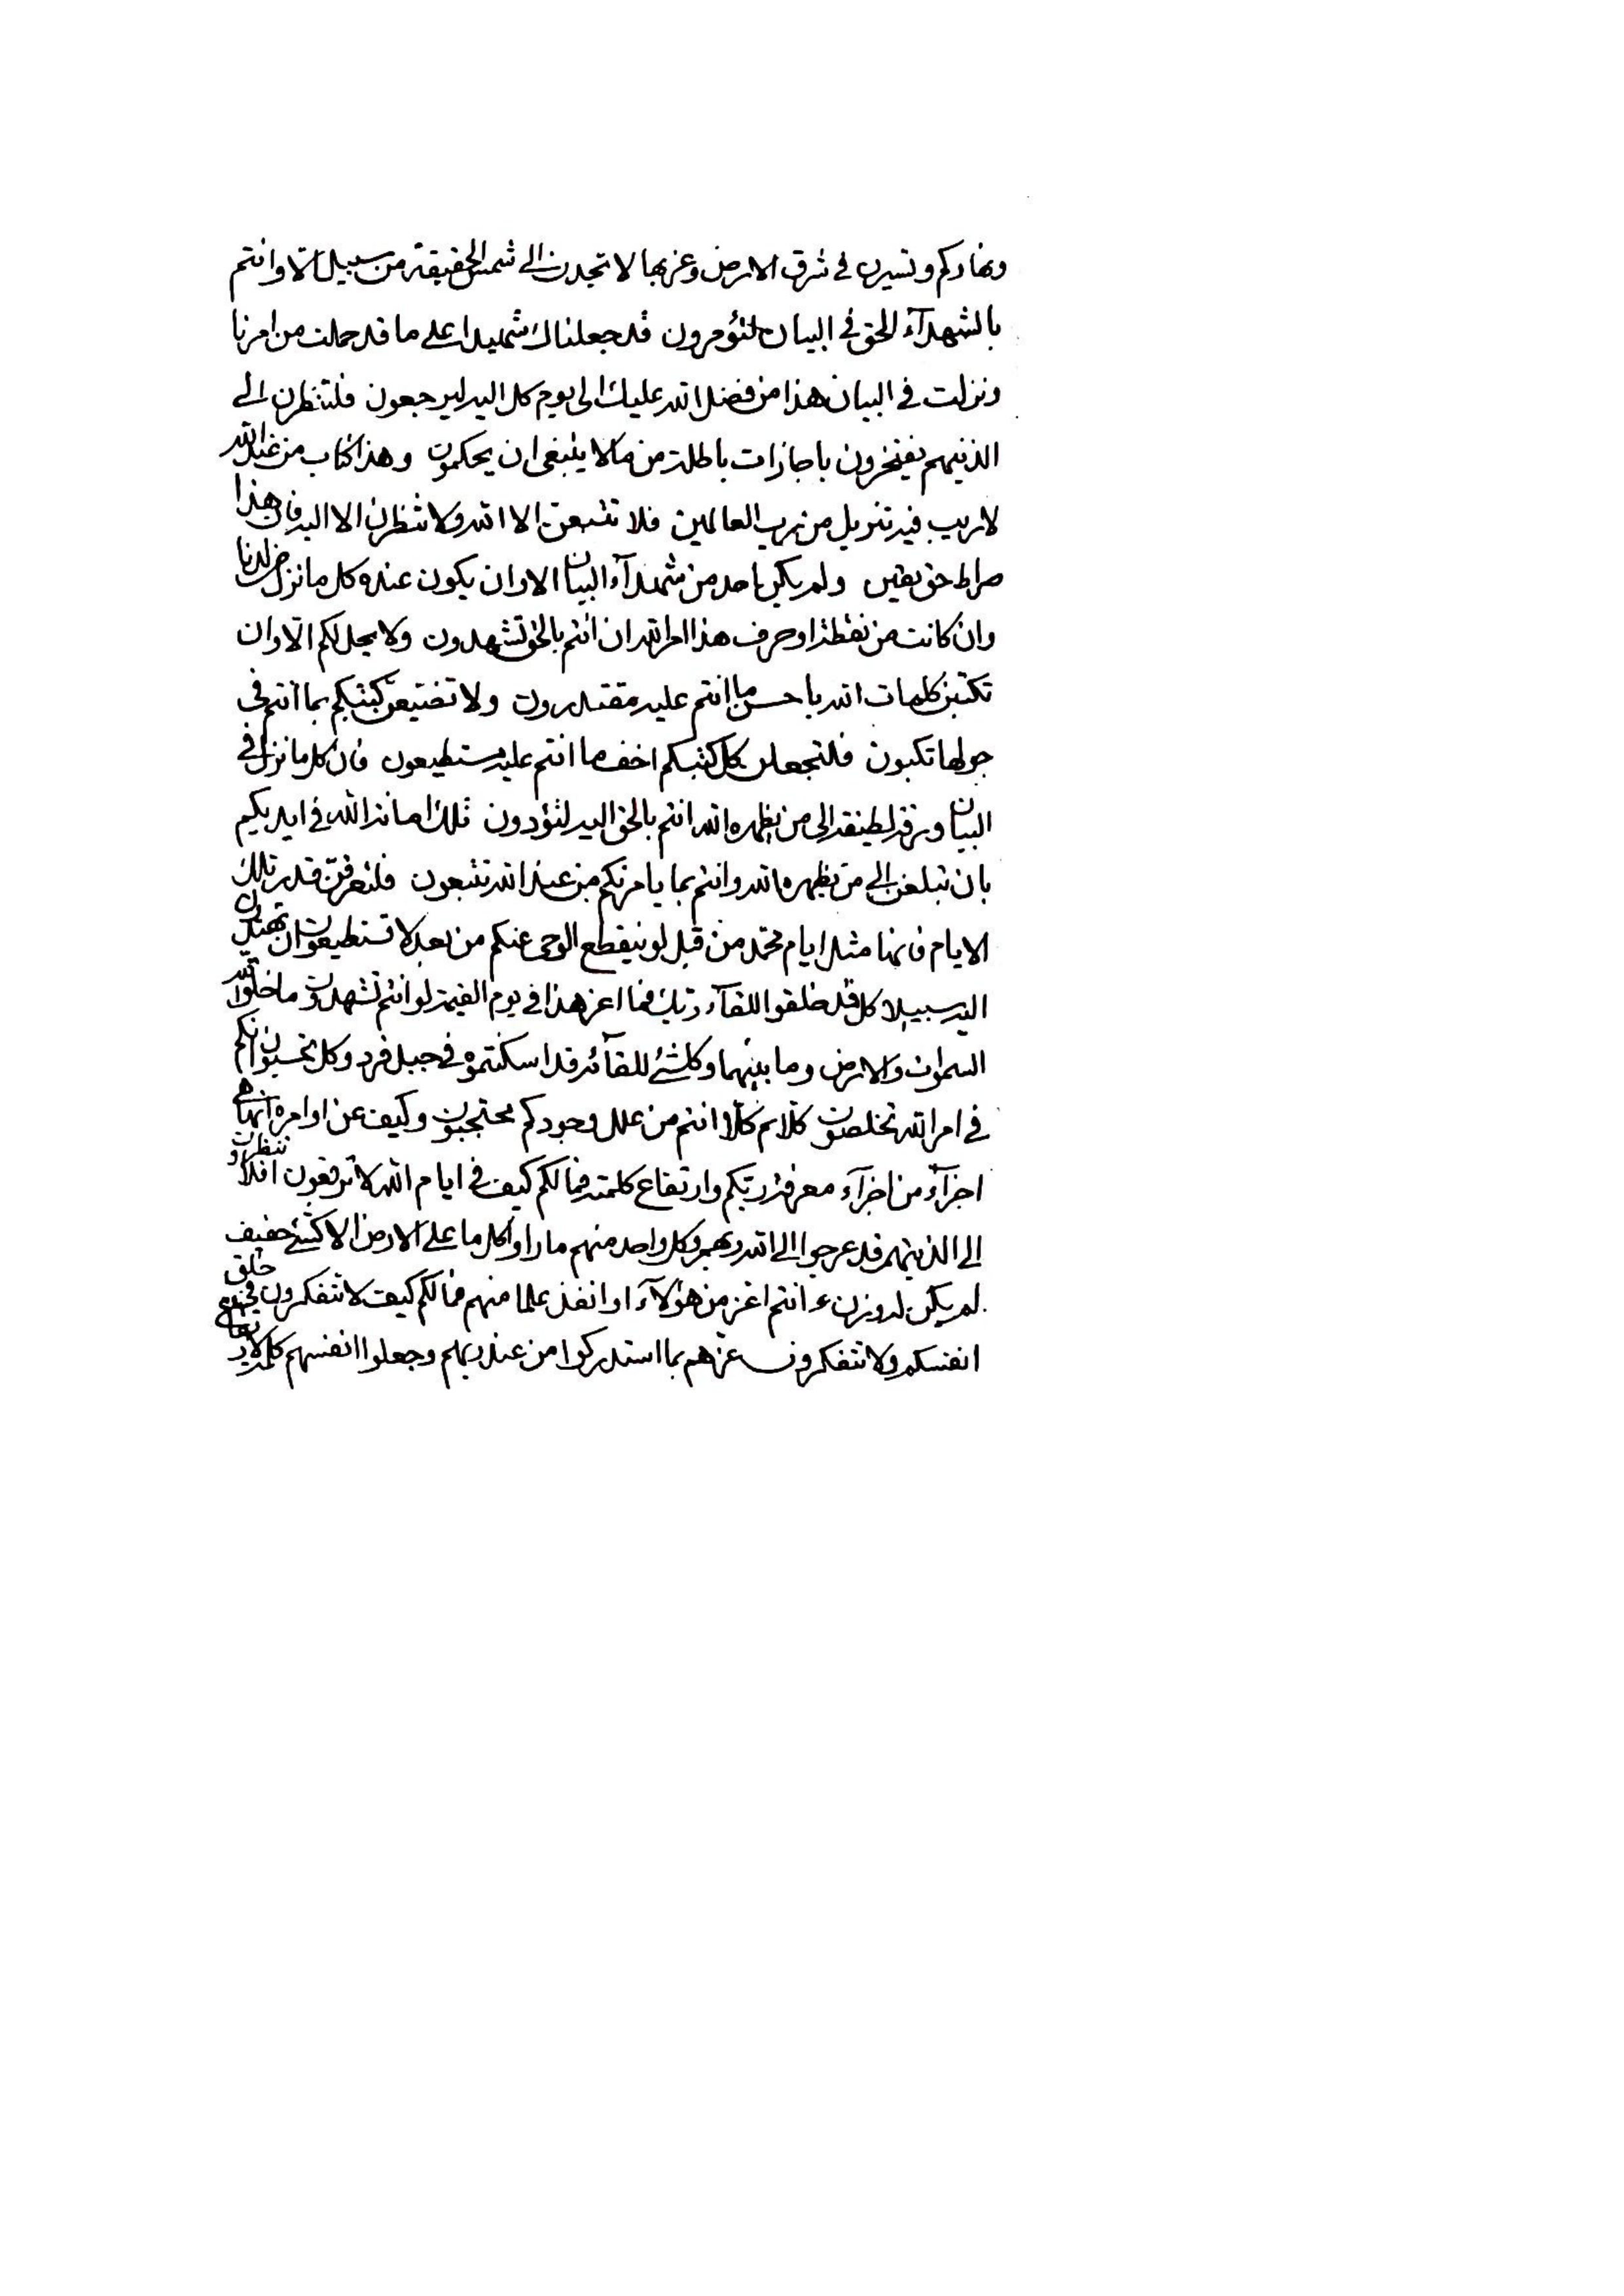 ونهاركم وتسيرن في شرق الارض وغربها لا تجدن الى شمس الحقيقة من سبيل الا وانتم
بالشهدآء الحق في البيان لتؤمرون قد جعلناك شهيدا على ما قد حملت من امرنا
ونزلت في البيان هذا من فضل الله عليك الى يوم كل اليه ليرجعون فلتنظرن الى
الذينهم يفتخرون باجازات باطلة من مالا ينبغى ان يحكمون وهذا كتاب من عند الله
لا ريب فيه تنزيل من رب العالمين فلا تتبعن الا الله ولا تنظرن الا اليه فان هذا
صراط حق يقين ولم يكن احد من شهدآء البيان الا وان يكون عنده كل ما نزل من لدنا
وان كانت من نقطة او حرف هذا امر الله ان انتم بالحق تشهدون ولا يحل لكم الا وان
تكتبن كلمات الله باحسن ما انتم عليه مقتدرون ولا تضيعن كتبكم بما انتم في
حولها تكتبون فلتجعلن كل كتبكم اخف ما انتم عليه مستطيعون فان كل ما نزل في
البيان ورقة لطيفة الى من يظهره الله انتم بالحق اليه لتؤدون تلك امانة الله في ايديكم
بان تبلغن الى من يظهره الله وانتم بما يامرنكم من عند الله تتبعون فلتعرفن قدر تلك
الايام فانها مثل ايام محمد من قبل لو ينقطع الوحى عنكم من بعد لا تستطيعون ان تهتدون
اليه سبيلا كل قد خلقوا للقآء ربك فما اعز هذا في يوم القيمة لو انتم تشهدون ما خلق الله
السموات والارض وما بينهما وكلشئ للقائه قد اسكنتموه في جبل فرد وكل تحسبون انكم
في امر الله تخلصون كلا ثم كلا انتم من علل وجودكم محتجبون وكيف عن اوامره انما هي
اجزآء من اجزآء معرفة ربكم وارتفاع كلمته فما لكم كيف في ايام الله لا ترقون افلا تنظرون
الى الذينهم قد عرجوا الى الله ربهم وكل واحد منهم ما راوا كل ما على الارض الا كشئ خفيف
لم يكن له وزن ء انتم اعز من هؤلآء او انفذ علما منهم فما لكم كيف لا تتفكرون في خلق
انفسكم ولا تتفكرون عزهم بما استدركوا من عند ربهم وجعلوا انفسهم